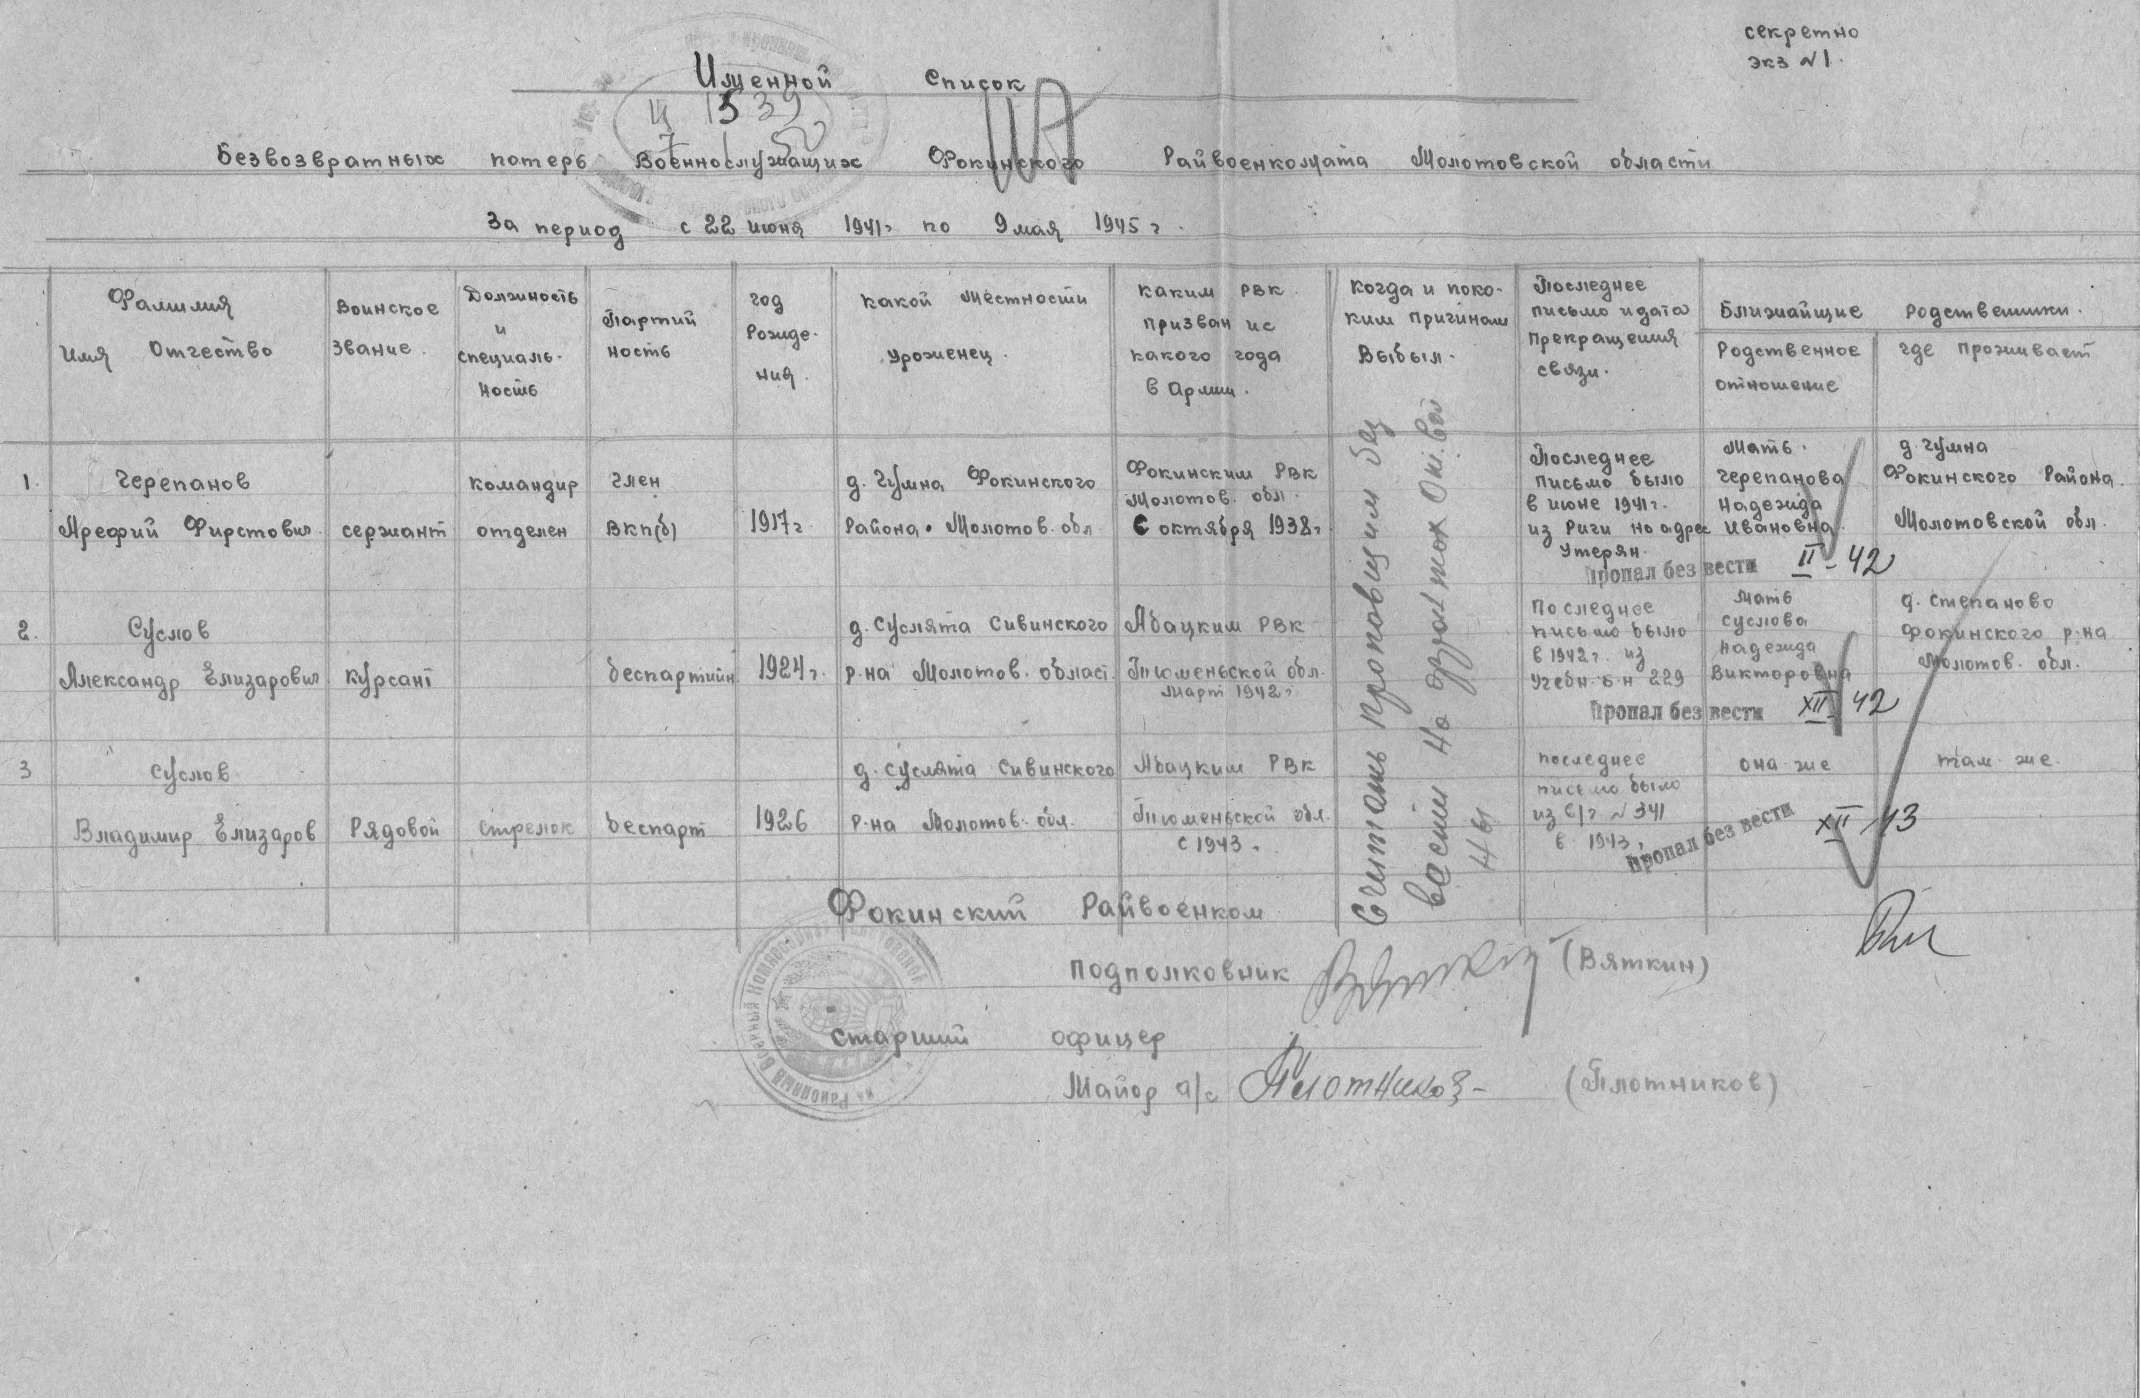 секретно
экз №1.
Именной Список
И 1539
Безвозвратных потерь Военнослужащих Фокинского Райвоенкомата Молотовской области
За период с 22 июня 1941г по 9 мая 1945 г.
Фамилия
Имя Отчество
Воинское
Звание.
Должность
и
специаль-
ность
Партий
ность
год
Рожде-
ния.
какой местности
уроженец.
каким РВК.
призван и с
какого года
в Армии.
когда и поко-
ким причинам
Выбыл.
Последнее
письмо и дата
прекращения
связи.
Ближайщие Родственники.
Родственное
отношение
где проживает
1.
Черепанов
Арефий Фирстович
сержант
командир
отделен
член
ВКП(б)
1917г
д. Гумна Фокинского
Района. Молотов. обл
Фокинским РВК
Молотов. обл.
С октября 1938г
Последнее
письмо было
в июне 1941г.
из Риги но адрес
Утерян.
Мать.
Черепанова
Надежда
Ивановна
д. Гумна
Фокинского Района.
Молотовской обл.
Пропал без вести II-42
2.
Суслов
Александр Елизарович
курсант
беспартийн
1924г.
д. Суслята Сивинского
р-на Молотов. област.
Абацким РВК
Тюменьской обл.
Март 1942г
Последнее
письмо было
в 1942г. из
Учебн. б-н 229
мать
Суслова
Надежида
Викторовна
д. Степаново
Фокинского р-на
Молотов. обл.
Пропал без вести XII 42
3
Суслов
Владимир Елизаров
Рядовой
стрелок
беспарт
1926
д. Суслята Сивинского
Р-на Молотов. обл.
Абацким РВК
Тюменьской обл.
с 1943.
последнее
письмо было
из С/г №341
в 1943.
она же
там же.
Пропал без вести XII-43
Считать пропавшим без
вести на
Фокинский Райвоенком
Подполковник (Вяткин)
Старший офицер
Майор а/с Плотников (Плотников)
Районный Военный Комиссариат